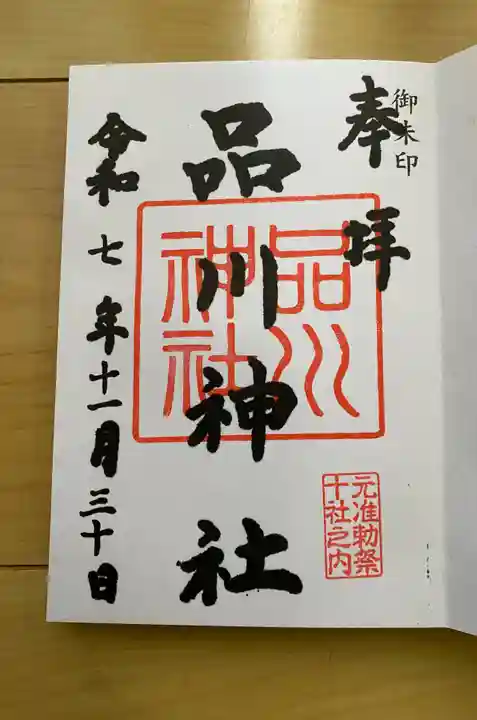 御朱印
奉拝
品川神社
品川
神社
元准勅祭
十社之内
令和七年十一月三十日